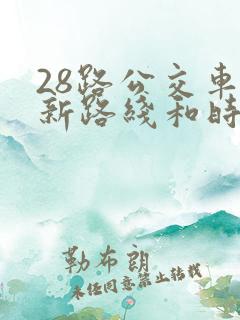 28路公交车
新路线和时
勒布朗
未经同意禁止转载